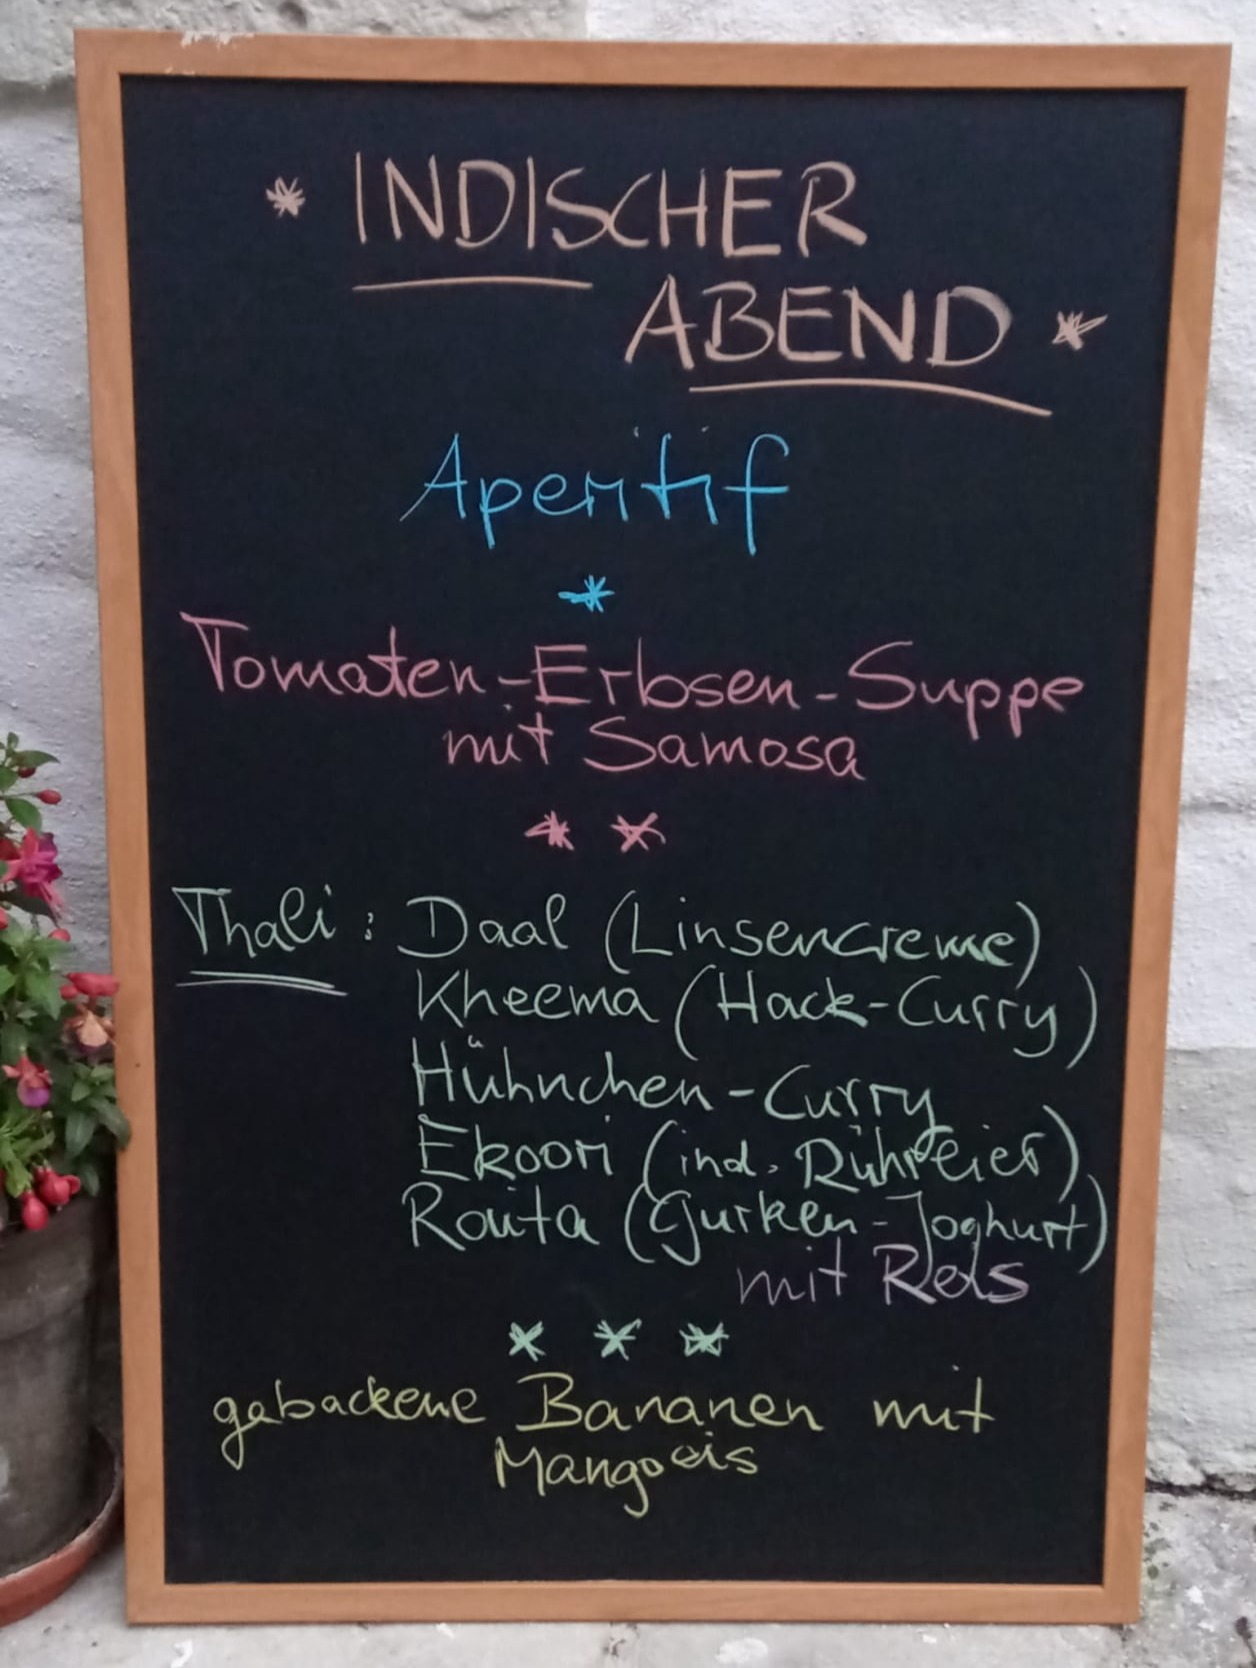 * INDISCHER
ABEND *
Aperitif
*
Tomaten-Erbsen-Suppe
mit Samosa
* *
Thali: Daal (Linsencreme)
Kheema (Hack-Curry)
Hühnchen-Curry
Ekoori (ind. Rühreier)
Raita (Gurken-Joghurt)
mit Reis
* * *
gebackene Bananen mit
Mangoeis